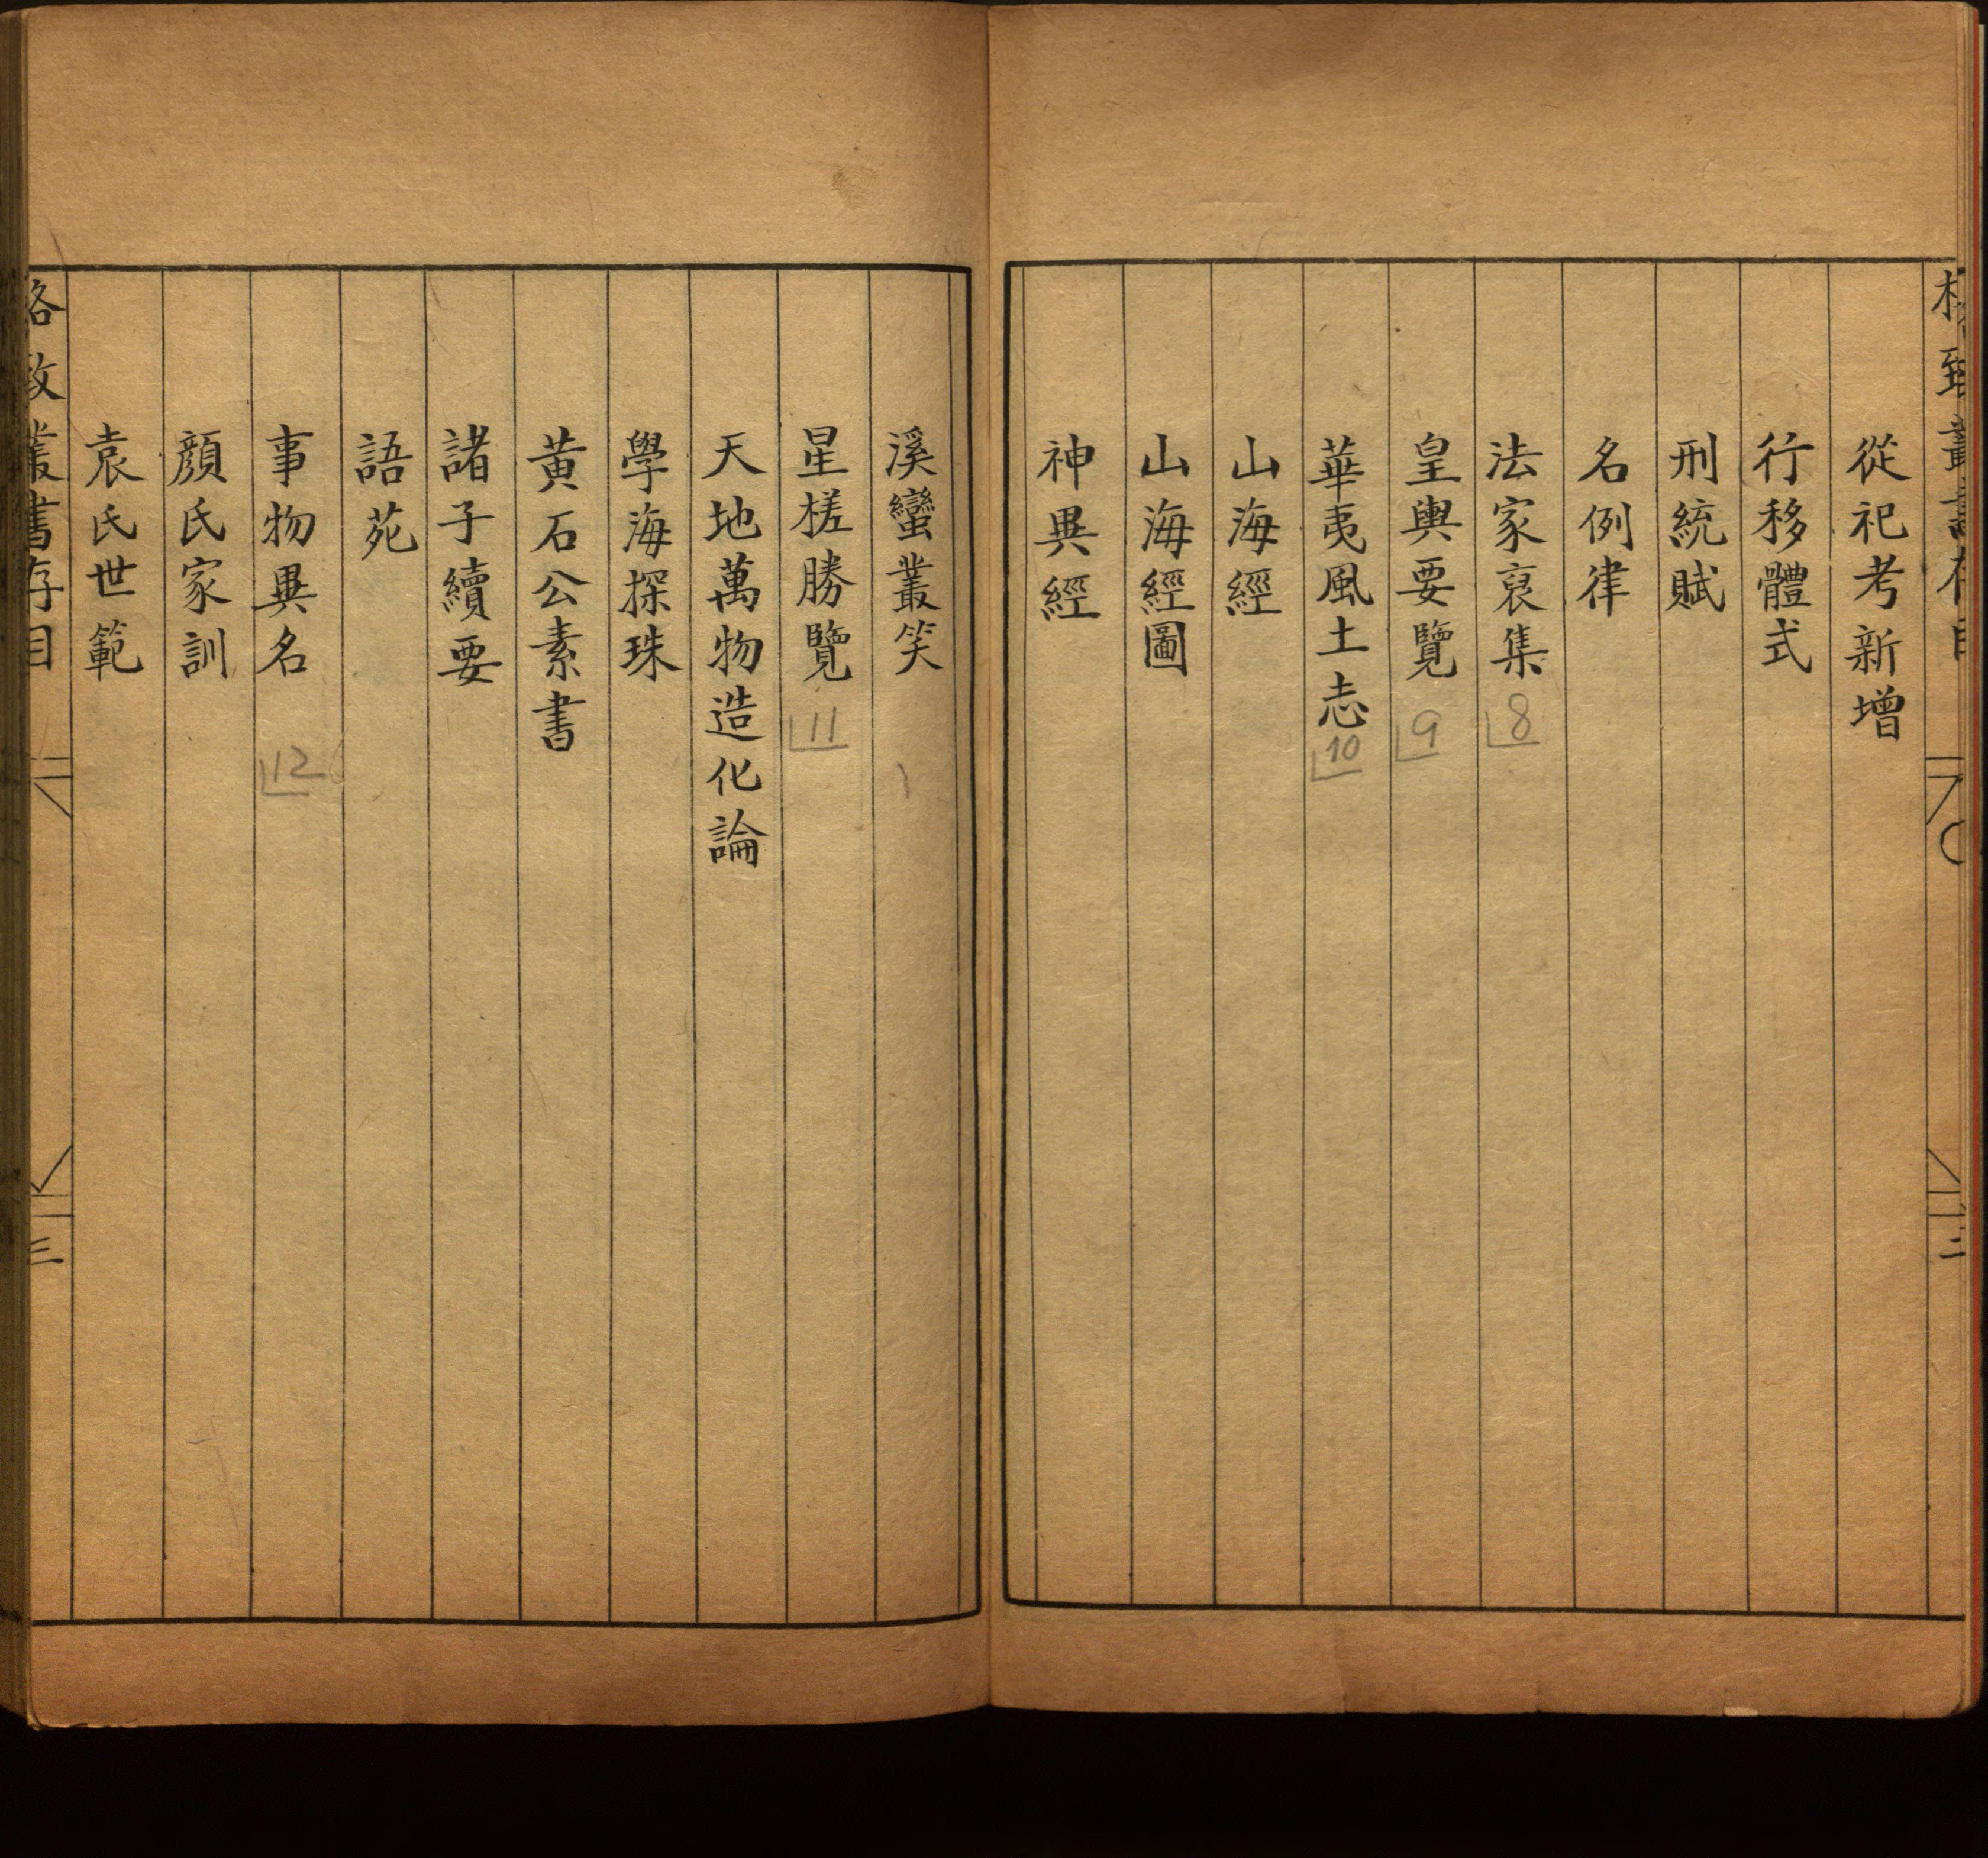 從祀考新增
行移體式
刑統賦
名例律
法家裒集 8
皇輿要覽 9
華夷風土志 10
山海經
山海經圖
神異經
溪蠻叢笑
星槎勝覽 11
天地萬物造化論
學海探珠
黃石公素書
諸子續要
語苑
事物異名 12
顏氏家訓
袁氏世範
格致叢書存目
三